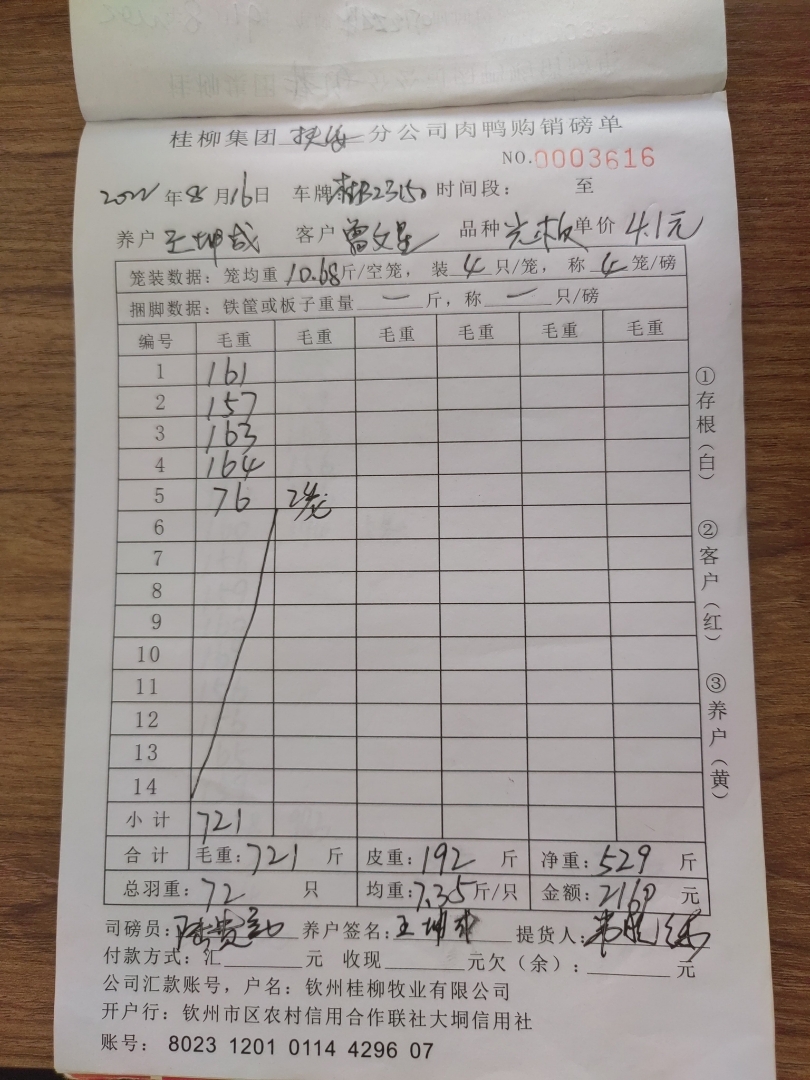 桂柳集团 扶绥 分公司肉鸭购销磅单
NO.0003616
2022年8月16日 车牌桂B23150 时间段： 至
养户 王坤成 客户 曾文星 品种 光板 单价 4.1元
笼装数据：笼均重10.68斤/空笼， 装 4 只/笼， 称 4 笼/磅
捆脚数据：铁筐或板子重量 一 斤，称 一 只/磅
编号 毛重 毛重 毛重 毛重 毛重 毛重
1 161
2 157
3 163
4 164
5 76 2笼
6
7
8
9
10
11
12
13
14
小计 721
合计 毛重：721 斤 皮重：192 斤 净重：529 斤
总羽重：72 只 均重：7.35斤/只 金额：2169 元
司磅员： 养户签名：王坤成 提货人：
付款方式：汇 元 收现 元欠（余）： 元
公司汇款账号，户名：钦州桂柳牧业有限公司
开户行：钦州市区农村信用合作联社大垌信用社
账号： 8023 1201 0114 4296 07
①存根（白）
②客户（红）
③养户（黄）